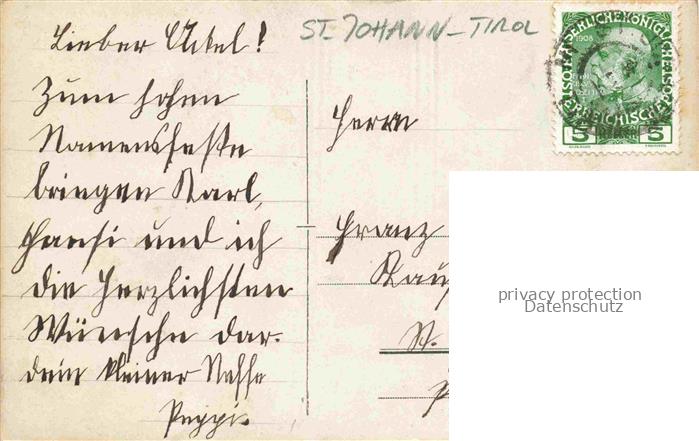 Lieber Onkel!
Zum hohen
Namensfeste
bringen Karl,
Hansi und ich
die herzlichsten
Wünsche dar.
dein kleiner Neffe
Peppi.
ST. JOHANN - TIROL
Herrn
Franz
St.
KAISERLICHE KÖNIGLICHE ÖSTERREICHISCHE POST
1908
5 HELLER 5
privacy protection
Datenschutz